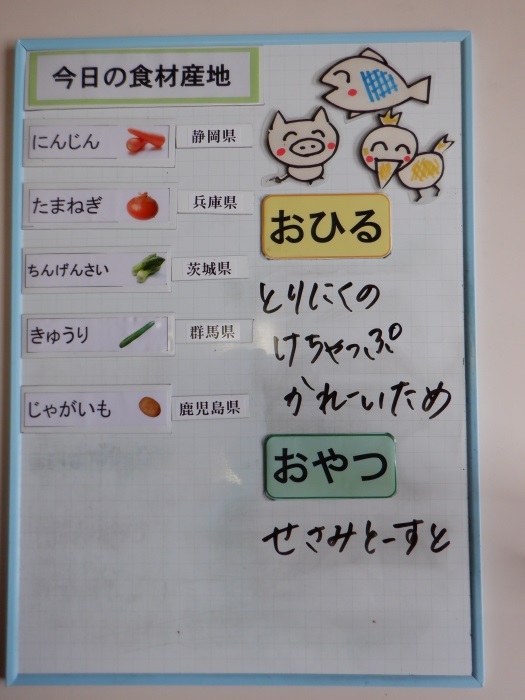 今日の食材産地
にんじん 静岡県
たまねぎ 兵庫県
ちんげんさい 茨城県
きゅうり 群馬県
じゃがいも 鹿児島県
おひる
とりにくの
けちゃっぷ
かれーいため
おやつ
せさみとーすと